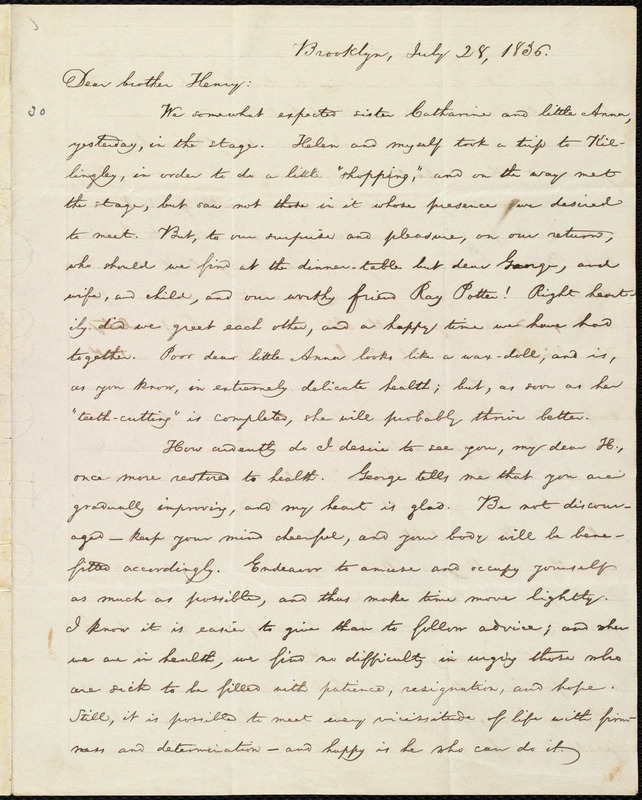 Brooklyn, July 28, 1836.
Dear brother Henry:
30
We somewhat expected sister Catharine and little Anna,
yesterday, in the stage. Helen and myself took a trip to Kil-
lingley, in order to do a little "shopping," and on the way met
the stage, but saw not those in it whose presence we desired
to meet. But, to our surprise and pleasure, on our return,
who should we find at the dinner-table but dear George, and
wife, and child, and our worthy friend Ray Potter! Right heart-
ily did we greet each other, and a happy time we have had
together. Poor dear little Anna looks like a wax-doll, and is,
as you know, in extremely delicate health; but, as soon as her
"teeth-cutting" is completed, she will probably thrive better.
How ardently do I desire to see you, my dear H.,
once more restored to health. George tells me that you are
gradually improving, and my heart is glad. Be not discour-
aged — keep your mind cheerful, and your body will be bene-
fitted accordingly. Endeavor to amuse and occupy yourself
as much as possible, and thus make time move lightly.
I know it is easier to give than to follow advice; and when
we are in health, we find no difficulty in urging those who
are sick to be filled with patience, resignation, and hope.
Still, it is possible to meet every vicissitude of life with firm-
ness and determination — and happy is he who can do it.